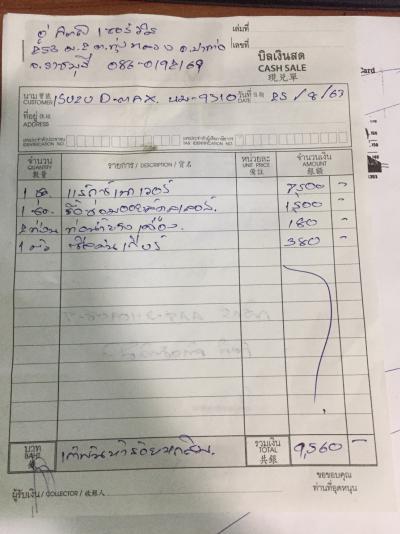 อู่ กิตติ เซอร์วิส
253 ม.2 ต.ทุ่งหลวง อ.ปากท่อ
จ.ราชบุรี 086-0192169
เล่มที่
เลขที่
บิลเงินสด
CASH SALE
現兌單
นาม 寶號 CUSTOMER ISUZU D-MAX. บม-9310 วันที่ 日期 25/8/63
ที่อยู่ 住址
ADDRESS
เลขประจำตัวประชาชน
IDENTIFICATION NO.
เลขประจำตัวผู้เสียภาษีอากร
TAX IDENTIFICATION NO.
จำนวน QUANTITY 數量 รายการ / DESCRIPTION / 貨名 หน่วยละ UNIT PRICE 備註 จำนวนเงิน AMOUNT 銀額
1 ชุด 7500 -
1 ชุด 1,500 -
2 ท่อน 180 -
1 ตัว 380 -
บาท BAHT เก้าพันห้าร้อยหกสิบ. รวมเงิน TOTAL 共銀 9,560 -
ผู้รับเงิน / COLLECTOR / 收銀人
ขอขอบคุณ
ท่านที่อุดหนุน